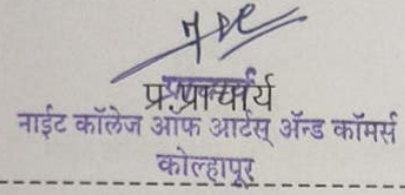 प्र.प्राचार्य
नाईट कॉलेज ऑफ आर्टस् ॲन्ड कॉमर्स
कोल्हापूर